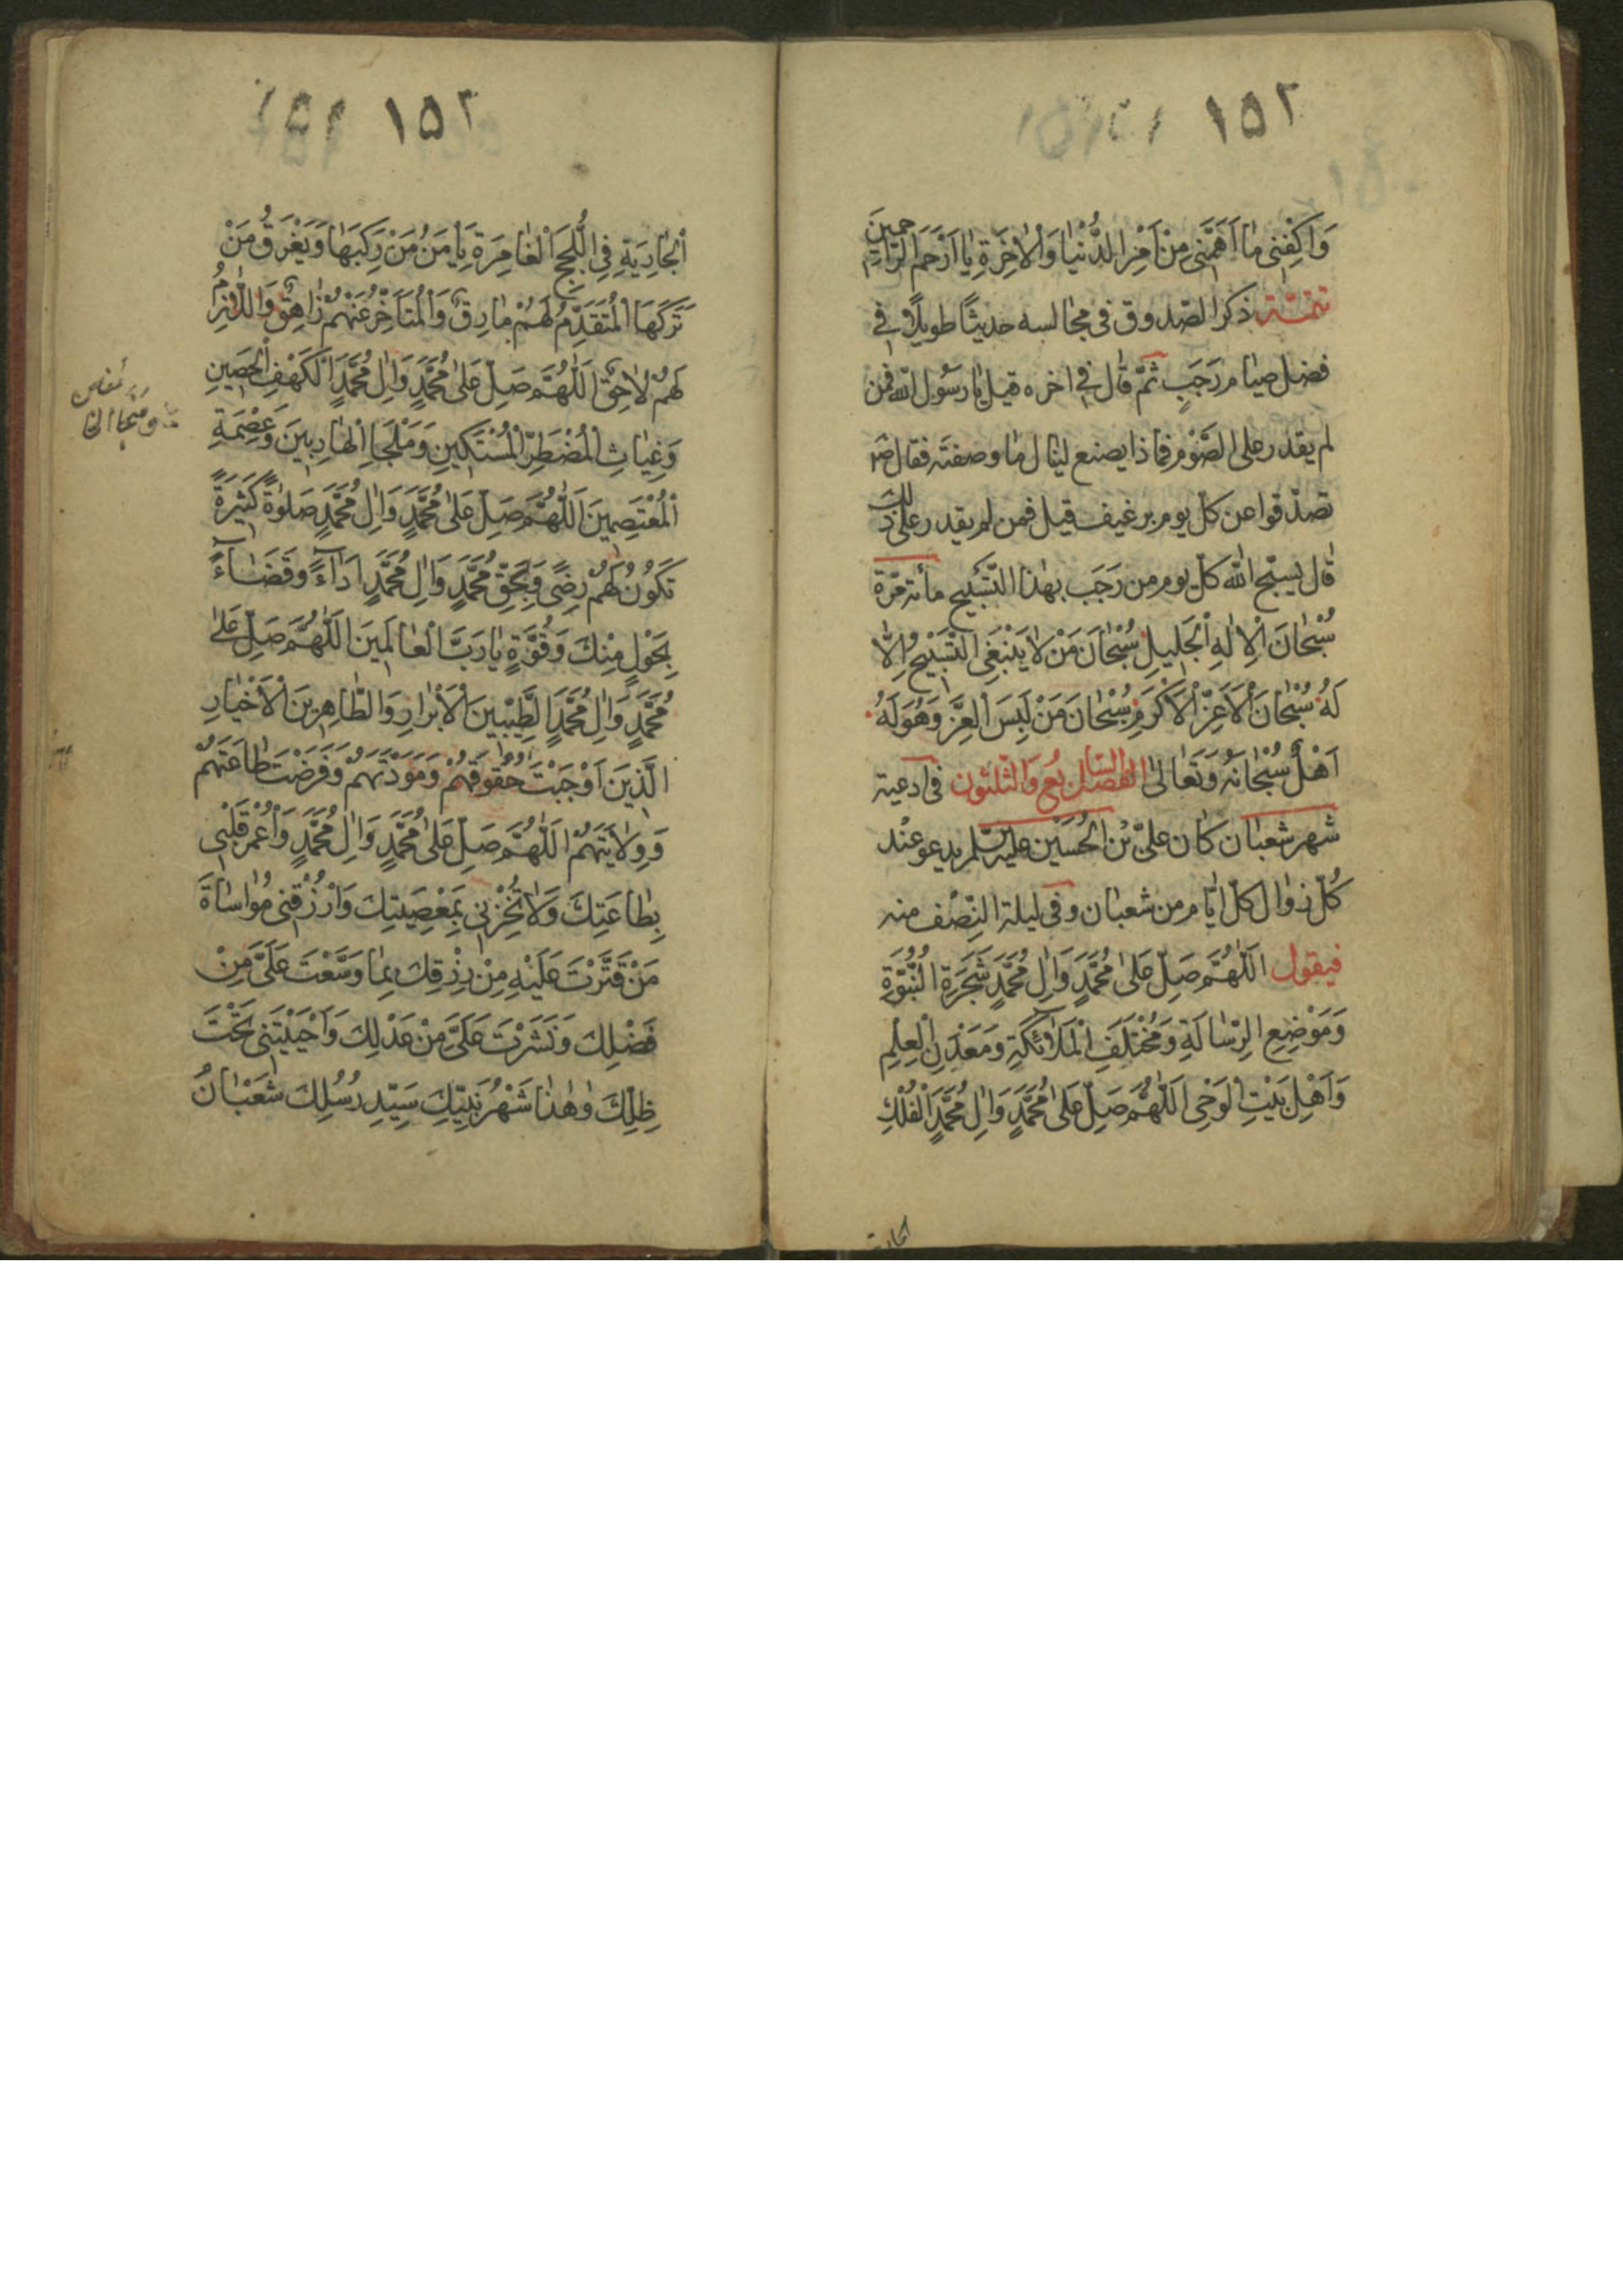 ١٥٢
وَاكْفِنِي مَا أَهَمَّنِي مِنْ أَمْرِ الدُّنْيَا وَالْآخِرَةِ يَا أَرْحَمَ الرَّاحِمِينَ
تتمّة ذكر الصّدوق في مجالسه حديثًا طويلًا في
فضل صيام رَجَبٍ ثمّ قال في اخره قيل يا رسُول الله فمن
لم يقدر على الصَّوْم فماذا يصنع لينال ما وصفتَه فقال ص
تصدّقوا عن كلّ يوم برغيف قيل فمن لم يقدر على ذلك
قال يسبّح الله كلّ يوم من رَجَب بهذا التّسْبيح مأئة مرّة
سُبْحَانَ الْإِلَهِ الْجَلِيلِ سُبْحَانَ مَنْ لَا يَنْبَغِي التَّسْبِيحُ إِلَّا
لَهُ سُبْحَانَ الْأَعَزِّ الْأَكْرَمِ سُبْحَانَ مَنْ لَبِسَ الْعِزَّ وَهُوَ لَهُ
أَهْلٌ سُبْحَانَهُ وَتَعَالَى الفصل السابع وَالثّلثون في ادعية
شهر شعبان كان عليّ بْن الْحُسَيْن عليه السّلم يدعو عنْد
كُلّ زوال كلّ ايّام من شعبان وفي ليلة النِّصْف منه
فيقول اللَّهُمَّ صَلِّ عَلَى مُحَمَّدٍ وَآلِ مُحَمَّدٍ شَجَرَةِ النُّبُوَّةِ
وَمَوْضِعِ الرِّسَالَةِ وَمُخْتَلَفِ الْمَلَائِكَةِ وَمَعْدِنِ الْعِلْمِ
وَأَهْلِ بَيْتِ الْوَحْيِ اللَّهُمَّ صَلِّ عَلَى مُحَمَّدٍ وَآلِ مُحَمَّدٍ الْفُلْكِ
الجارية
١٥٢
الْجَارِيَةِ فِي اللُّجَجِ الْغَامِرَةِ يَأْمَنُ مَنْ رَكِبَهَا وَيَغْرَقُ مَنْ
تَرَكَهَا الْمُتَقَدِّمُ لَهُمْ مَارِقٌ وَالْمُتَأَخِّرُ عَنْهُمْ زَاهِقٌ وَاللَّازِمُ
لَهُمْ لَاحِقٌ اللَّهُمَّ صَلِّ عَلَى مُحَمَّدٍ وَآلِ مُحَمَّدٍ الْكَهْفِ الْحَصِينِ
وَغِيَاثِ الْمُضْطَرِّ الْمُسْتَكِينِ وَمَلْجَإِ الْهَارِبِينَ وَعِصْمَةِ
الْمُعْتَصِمِينَ اللَّهُمَّ صَلِّ عَلَى مُحَمَّدٍ وَآلِ مُحَمَّدٍ صَلَوٰةً كَثِيرَةً
تَكُونُ لَهُمْ رِضًى وَبِحَقِّ مُحَمَّدٍ وَآلِ مُحَمَّدٍ أَدَاءً وَقَضَاءً
بِحَوْلٍ مِنْكَ وَقُوَّةٍ يَا رَبَّ الْعَالَمِينَ اللَّهُمَّ صَلِّ عَلَى
مُحَمَّدٍ وَآلِ مُحَمَّدٍ الطَّيِّبِينَ الْأَبْرَارِ وَالطَّاهِرِينَ الْأَخْيَارِ
الَّذِينَ أَوْجَبْتَ حُقُوقَهُمْ وَمَوَدَّتَهُمْ وَفَرَضْتَ طَاعَتَهُمْ
وَوِلَايَتَهُمْ اللَّهُمَّ صَلِّ عَلَى مُحَمَّدٍ وَآلِ مُحَمَّدٍ وَاعْمُرْ قَلْبِي
بِطَاعَتِكَ وَلَا تُخْزِنِي بِمَعْصِيَتِكَ وَارْزُقْنِي مُوَاسَاةَ
مَنْ قَتَّرْتَ عَلَيْهِ مِنْ رِزْقِكَ بِمَا وَسَّعْتَ عَلَيَّ مِنْ
فَضْلِكَ وَنَشَرْتَ عَلَيَّ مِنْ عَدْلِكَ وَأَحْيَيْتَنِي تَحْتَ
ظِلِّكَ وَهٰذَا شَهْرُ نَبِيِّكَ سَيِّدِ رُسُلِكَ شَعْبَانُ